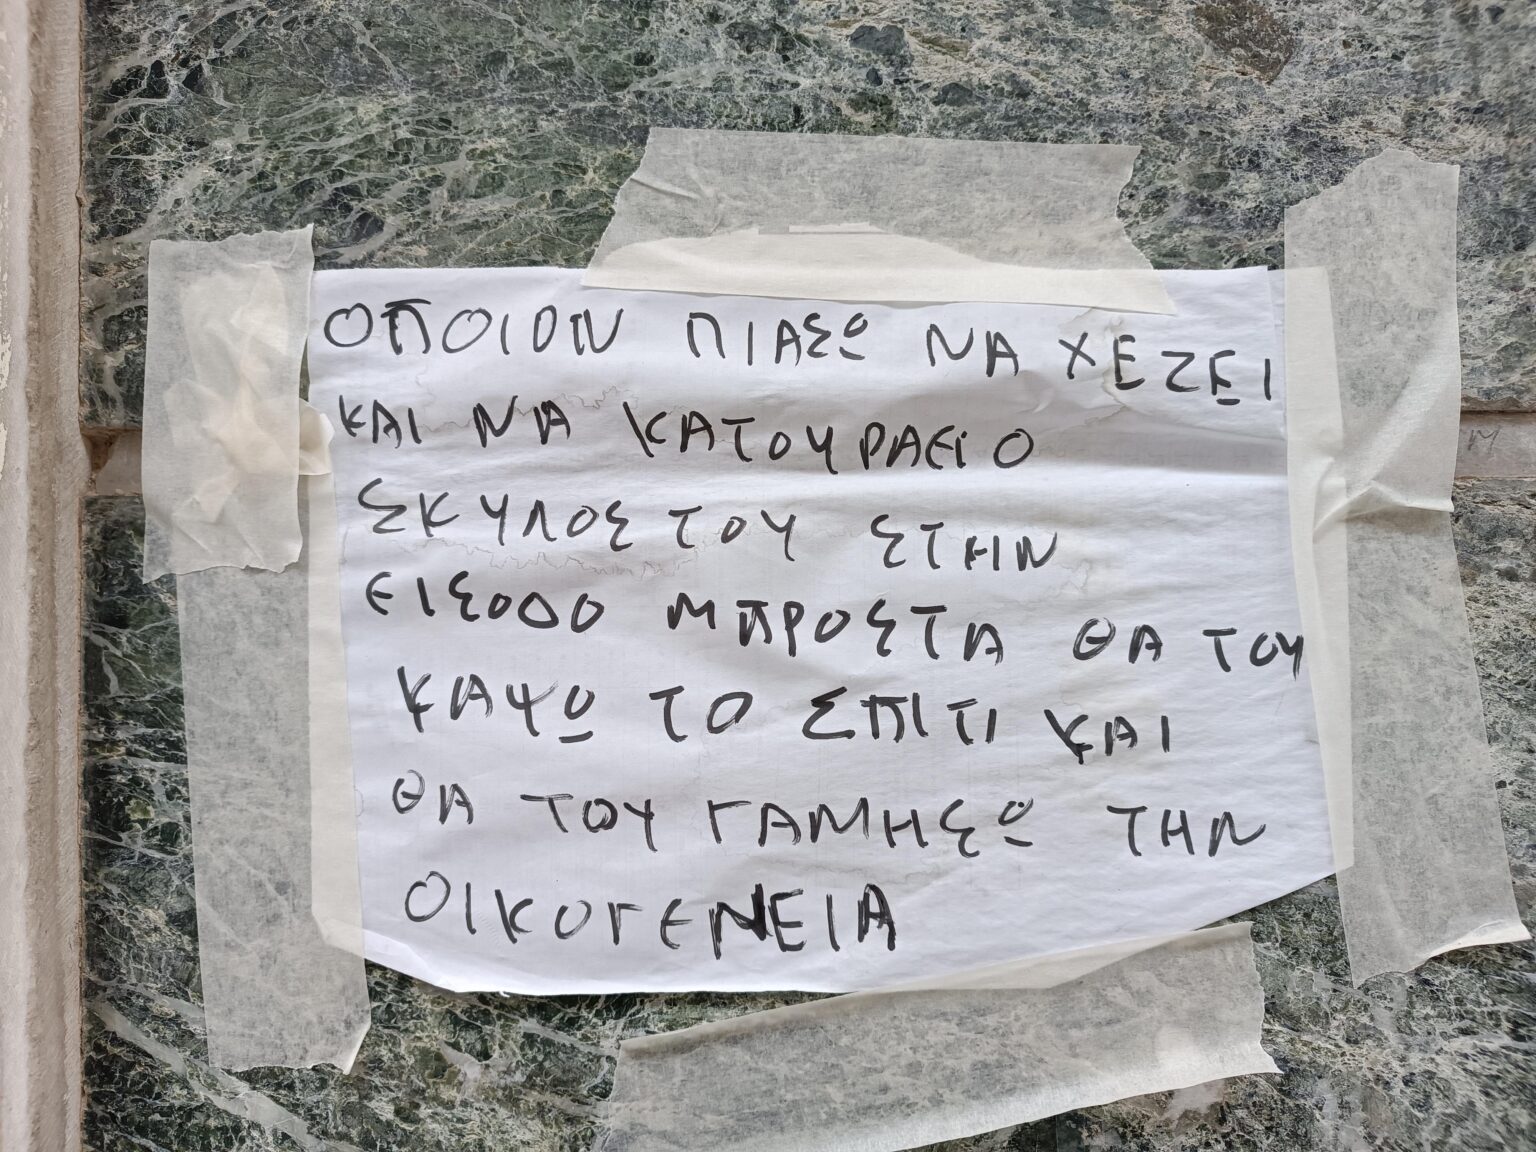 ΟΠΟΙΟΝ ΠΙΑΣΩ ΝΑ ΧΕΖΕΙ
ΚΑΙ ΝΑ ΚΑΤΟΥΡΑΕΙ Ο
ΣΚΥΛΟΣ ΤΟΥ ΣΤΗΝ
ΕΙΣΟΔΟ ΜΠΡΟΣΤΑ ΘΑ ΤΟΥ
ΚΑΨΩ ΤΟ ΣΠΙΤΙ ΚΑΙ
ΘΑ ΤΟΥ ΓΑΜΗΣΩ ΤΗΝ
ΟΙΚΟΓΕΝΕΙΑ